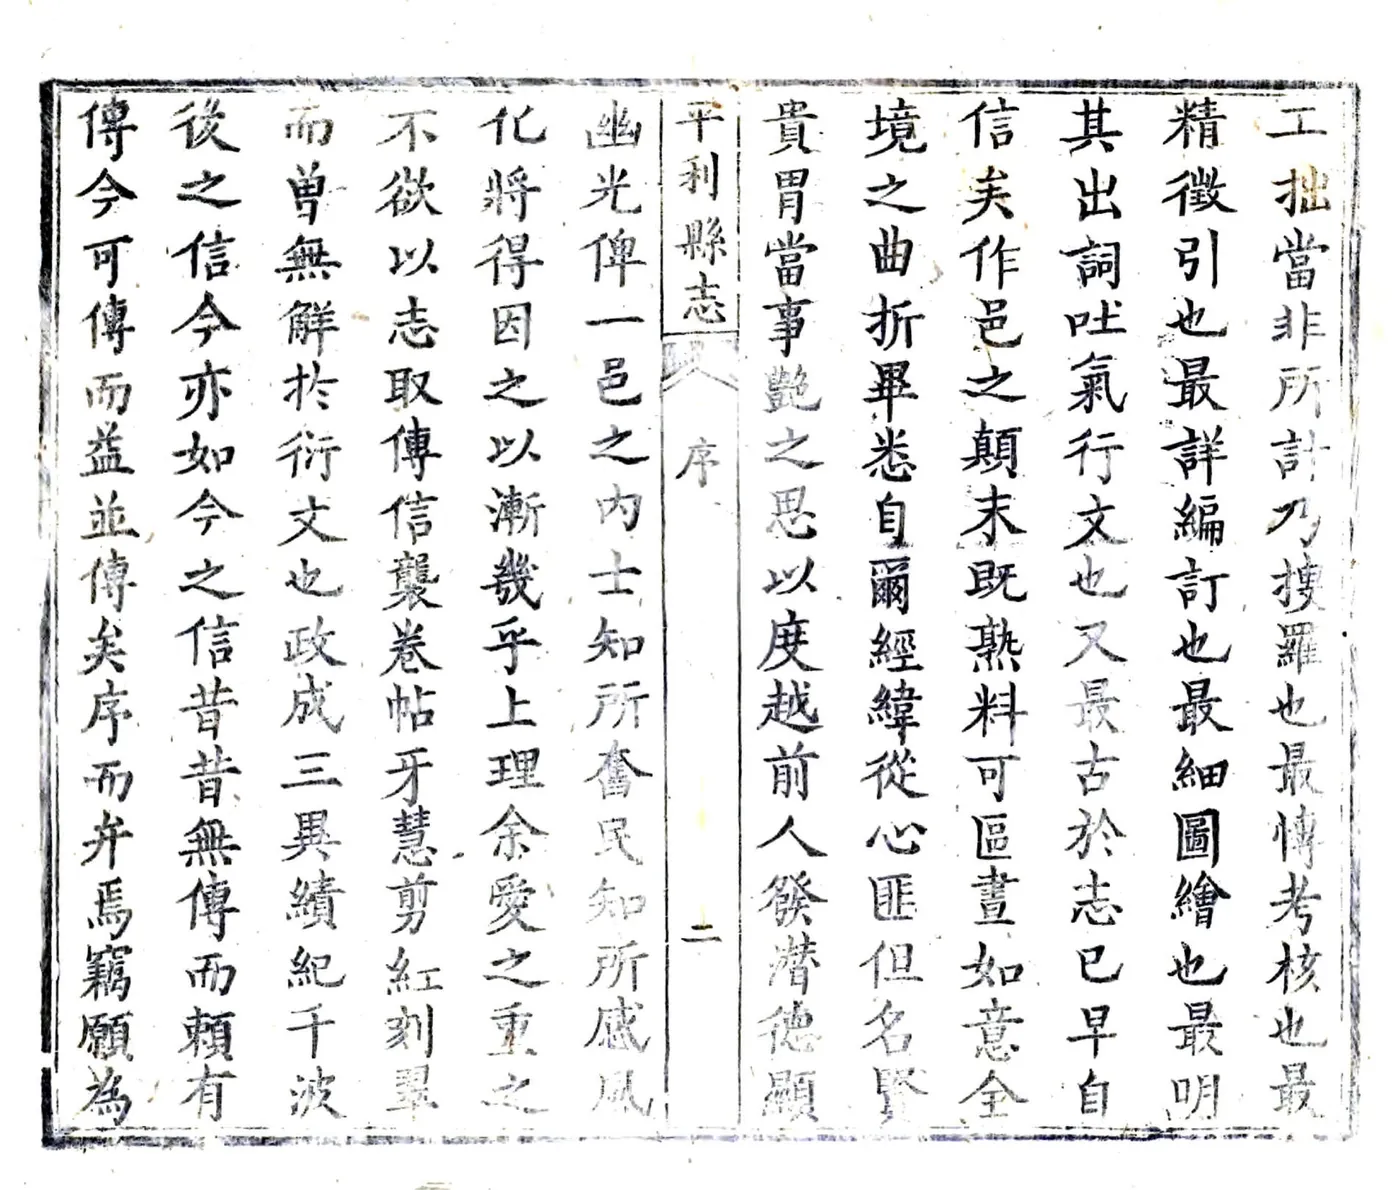 工拙當非所計乃摟羅也最慱考核也最
精徵引也最詳編訂也最細圖繪也最明
其出詞吐氣行文也又最古於志已早自
信矣作邑之顛末既熟料可區畫如意全
境之曲折畢悉自爾經緯從心匪但名賢
貴胃當事艷之思以度越前人發潛德顯
平利縣志 序 二
幽光俾一邑之內士知所奮民知所感風
化將得因之以漸幾乎上理余愛之重之
不欲以志取傳信襲卷帖牙慧剪紅刻翠
而曾無解於衍文也政成三異績紀千波
後之信今亦如今之信昔昔無傳而賴有
傳今可傳而益並傳矣序而弁焉竊願為